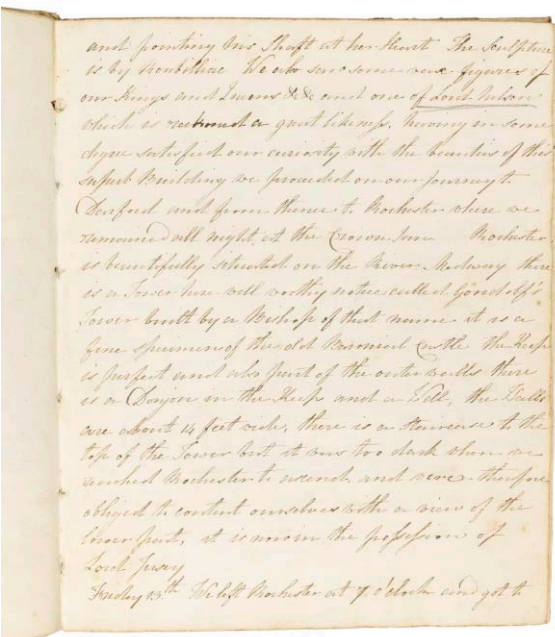 and pointing his Shaft at her Heart The Sculpture
is by Roubilliac We also saw some wax figures of
our Kings and Queens &c &c and one of Lord Nelson
which is reckoned a great likeness, having in some
degree satisfied our curiosity with the beauties of this
superb Building we proceeded on our journey to
Dartford and from thence to Rochester where we
remained all night at the Crown Inn Rochester
is beautifully situated on the River Medway there
is a Tower here well worthy notice called Gondolf's
Tower built by a Bishop of that name it is a
fine specimen of the old Baronial Castle the Keep
is perfect and also part of the outer walls there
is a Donjon in the Keep and a Well, the Walls
are about 14 feet wide, there is a staircase to the
top of the Tower but it was too dark when we
reached Rochester to ascend and were therefore
obliged to content ourselves with a view of the
lower part, it is now in the possession of
Lord Jersey
Friday 13.th We left Rochester at 7 o'clock and got to